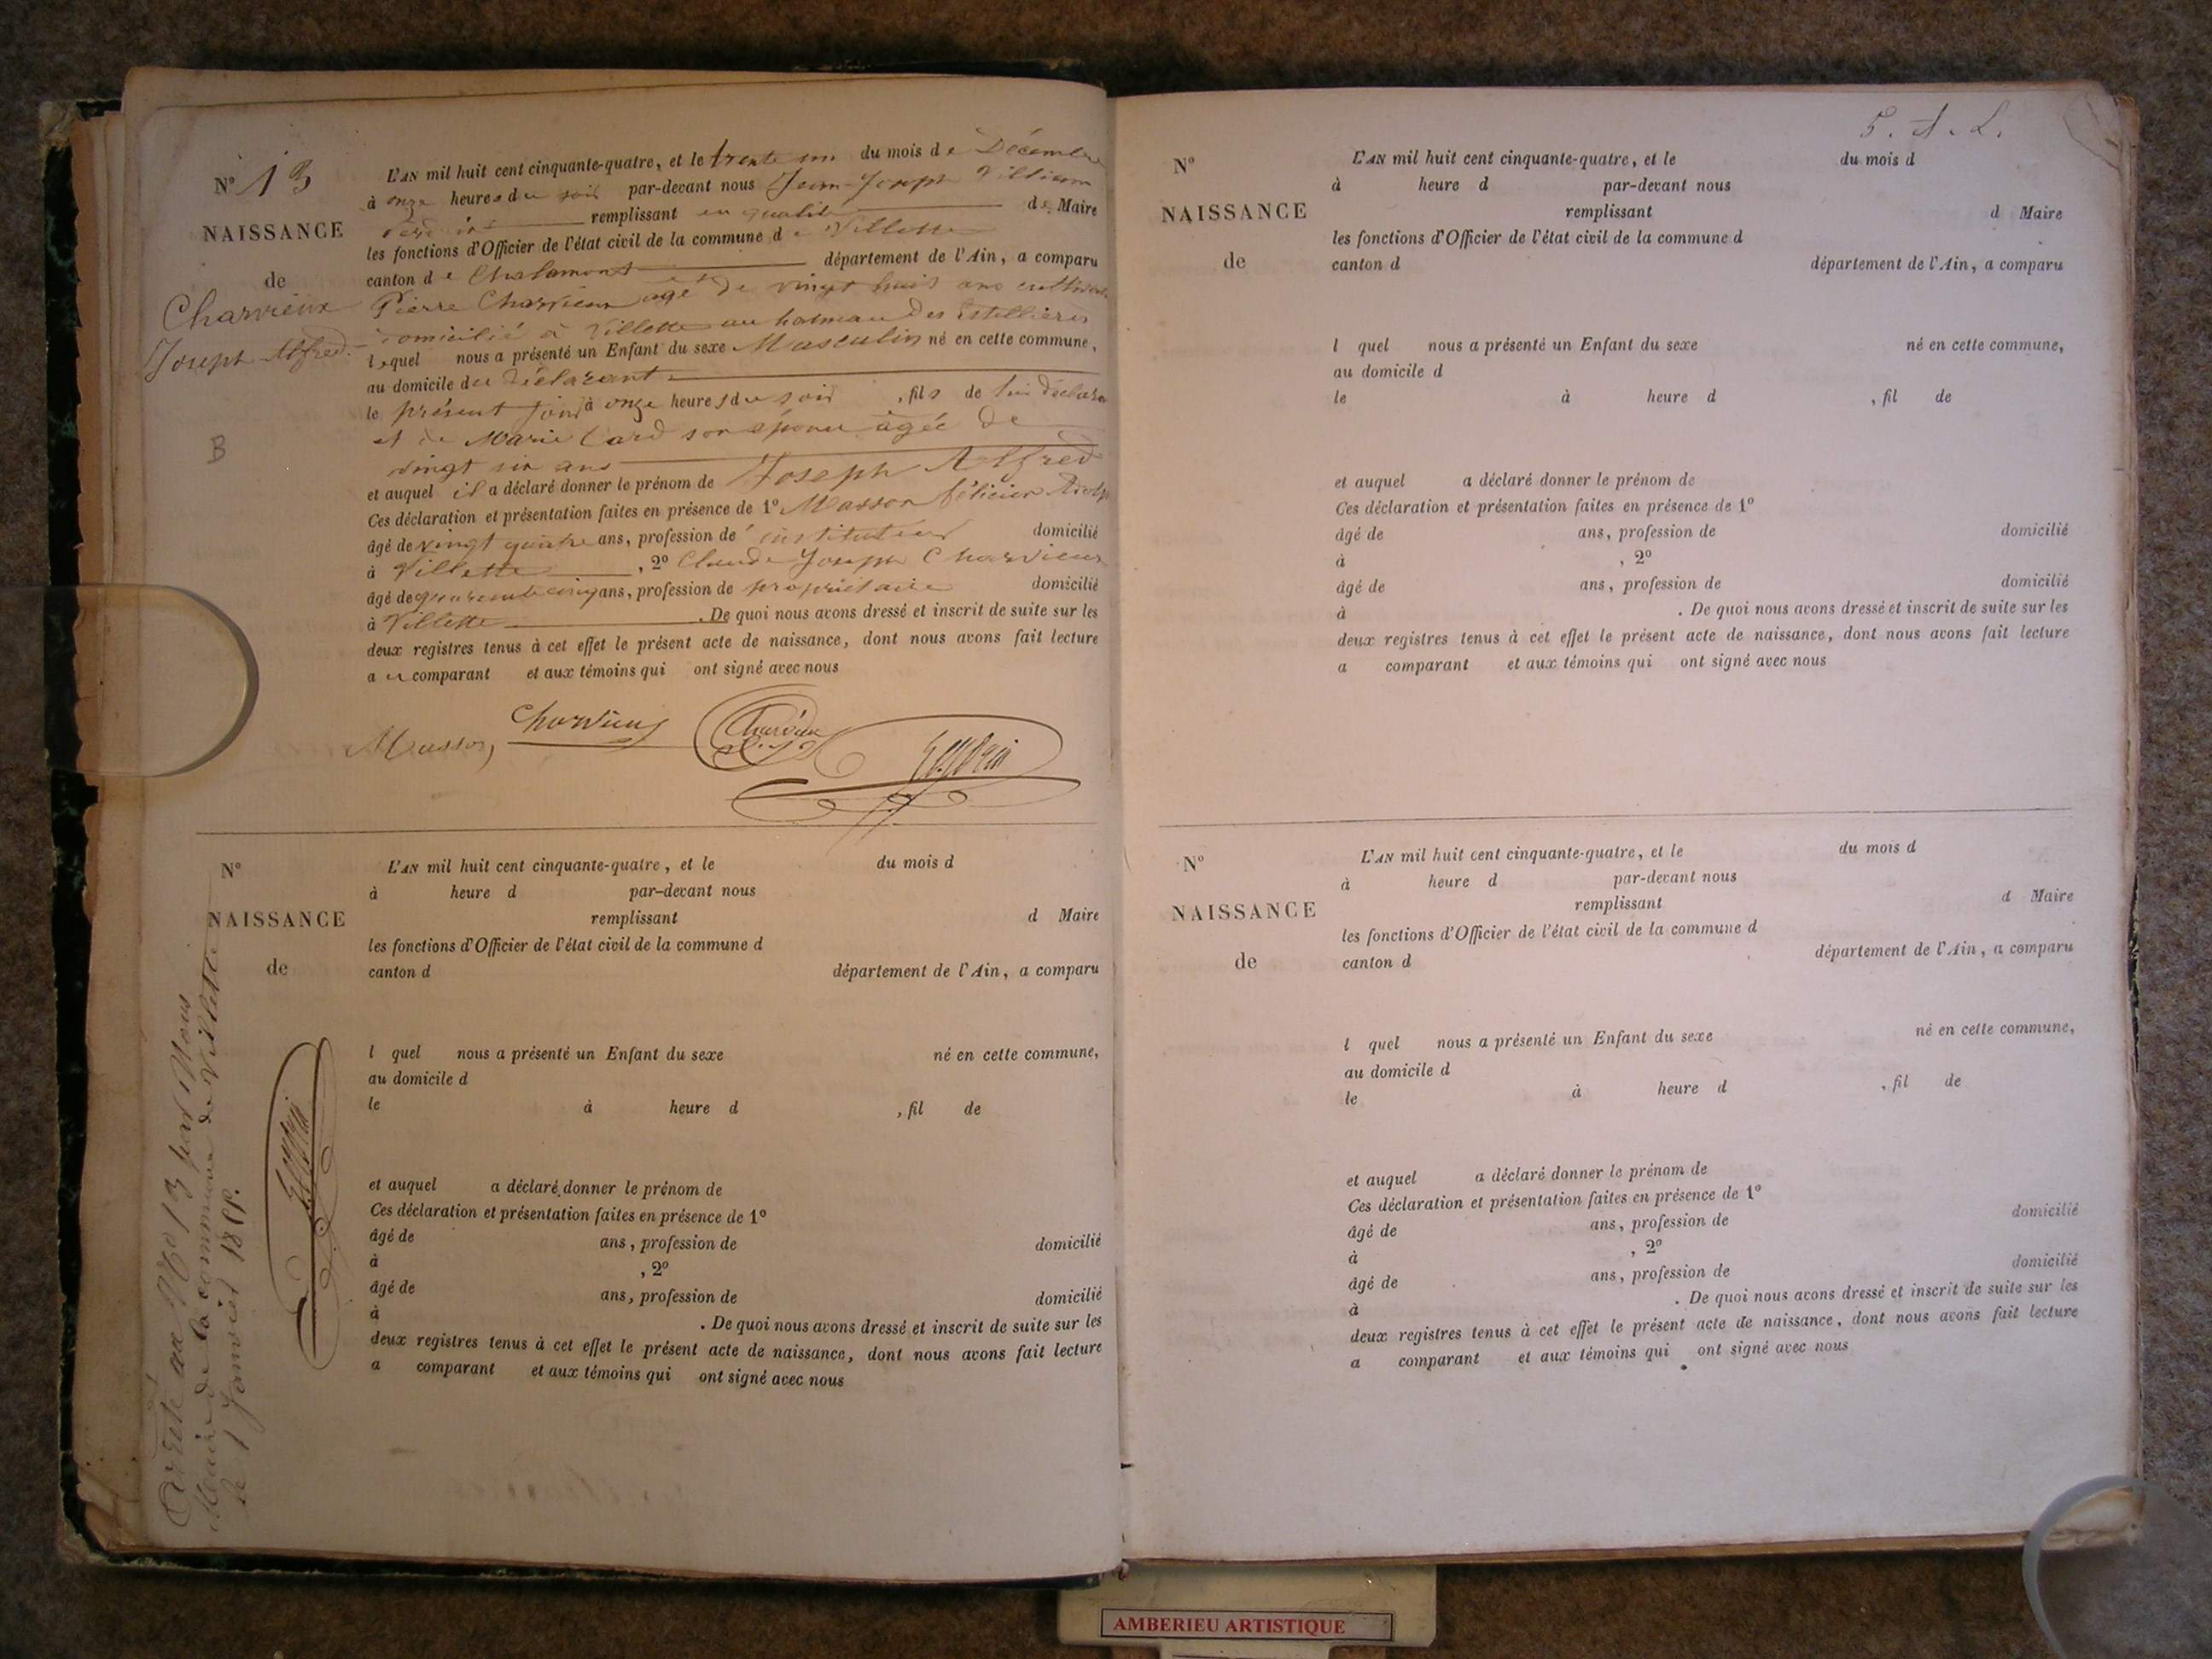 N° 13
NAISSANCE
de
Charvieux
Joseph Alfred
B
L'AN mil huit cent cinquante-quatre, et le trente un du mois de Décembre
à onze heures du soir par-devant nous Jean-Joseph
remplissant en qualité de Maire
les fonctions d'Officier de l'état civil de la commune de Villette
canton de Chalamont département de l'Ain, a comparu
Pierre Charvieux agé de vingt huit ans cultivateur
domicilié à Villette au hameau des
lequel nous a présenté un Enfant du sexe Masculin né en cette commune,
au domicile du Déclarant
le présent jour à onze heures du soir, fils de lui déclarant
et de Marie Card son épouse agée de
vingt six ans
et auquel il a déclaré donner le prénom de Joseph Alfred
Ces déclaration et présentation faites en présence de 1° Masson félicien
âgé de vingt quatre ans, profession de instituteur domicilié
à Villette, 2° Claude Joseph Charvieux
âgé de quarante cinq ans, profession de propriétaire domicilié
à Villette. De quoi nous avons dressé et inscrit de suite sur les
deux registres tenus à cet effet le présent acte de naissance, dont nous avons fait lecture
au comparant et aux témoins qui ont signé avec nous
Masson Charvieux Charvieux
N°
NAISSANCE
de
L'AN mil huit cent cinquante-quatre, et le du mois d
à heure d par-devant nous
remplissant d Maire
les fonctions d'Officier de l'état civil de la commune d
canton d département de l'Ain, a comparu
l quel nous a présenté un Enfant du sexe né en cette commune,
au domicile d
le à heure d , fil de
et auquel a déclaré donner le prénom de
Ces déclaration et présentation faites en présence de 1°
âgé de ans, profession de domicilié
à , 2°
âgé de ans, profession de domicilié
à . De quoi nous avons dressé et inscrit de suite sur les
deux registres tenus à cet effet le présent acte de naissance, dont nous avons fait lecture
a comparant et aux témoins qui ont signé avec nous
Arrêté au N° 13 par Nous
Maire de la commune de Villette
le 1 Janvier 1855.
5. A. L.
N°
NAISSANCE
de
L'AN mil huit cent cinquante-quatre, et le du mois d
à heure d par-devant nous
remplissant d Maire
les fonctions d'Officier de l'état civil de la commune d
canton d département de l'Ain, a comparu
l quel nous a présenté un Enfant du sexe né en cette commune,
au domicile d
le à heure d , fil de
et auquel a déclaré donner le prénom de
Ces déclaration et présentation faites en présence de 1°
âgé de ans, profession de domicilié
à , 2°
âgé de ans, profession de domicilié
à . De quoi nous avons dressé et inscrit de suite sur les
deux registres tenus à cet effet le présent acte de naissance, dont nous avons fait lecture
a comparant et aux témoins qui ont signé avec nous
N°
NAISSANCE
de
L'AN mil huit cent cinquante-quatre, et le du mois d
à heure d par-devant nous
remplissant d Maire
les fonctions d'Officier de l'état civil de la commune d
canton d département de l'Ain, a comparu
l quel nous a présenté un Enfant du sexe né en cette commune,
au domicile d
le à heure d , fil de
et auquel a déclaré donner le prénom de
Ces déclaration et présentation faites en présence de 1°
âgé de ans, profession de domicilié
à , 2°
âgé de ans, profession de domicilié
à . De quoi nous avons dressé et inscrit de suite sur les
deux registres tenus à cet effet le présent acte de naissance, dont nous avons fait lecture
a comparant et aux témoins qui ont signé avec nous
AMBERIEU ARTISTIQUE